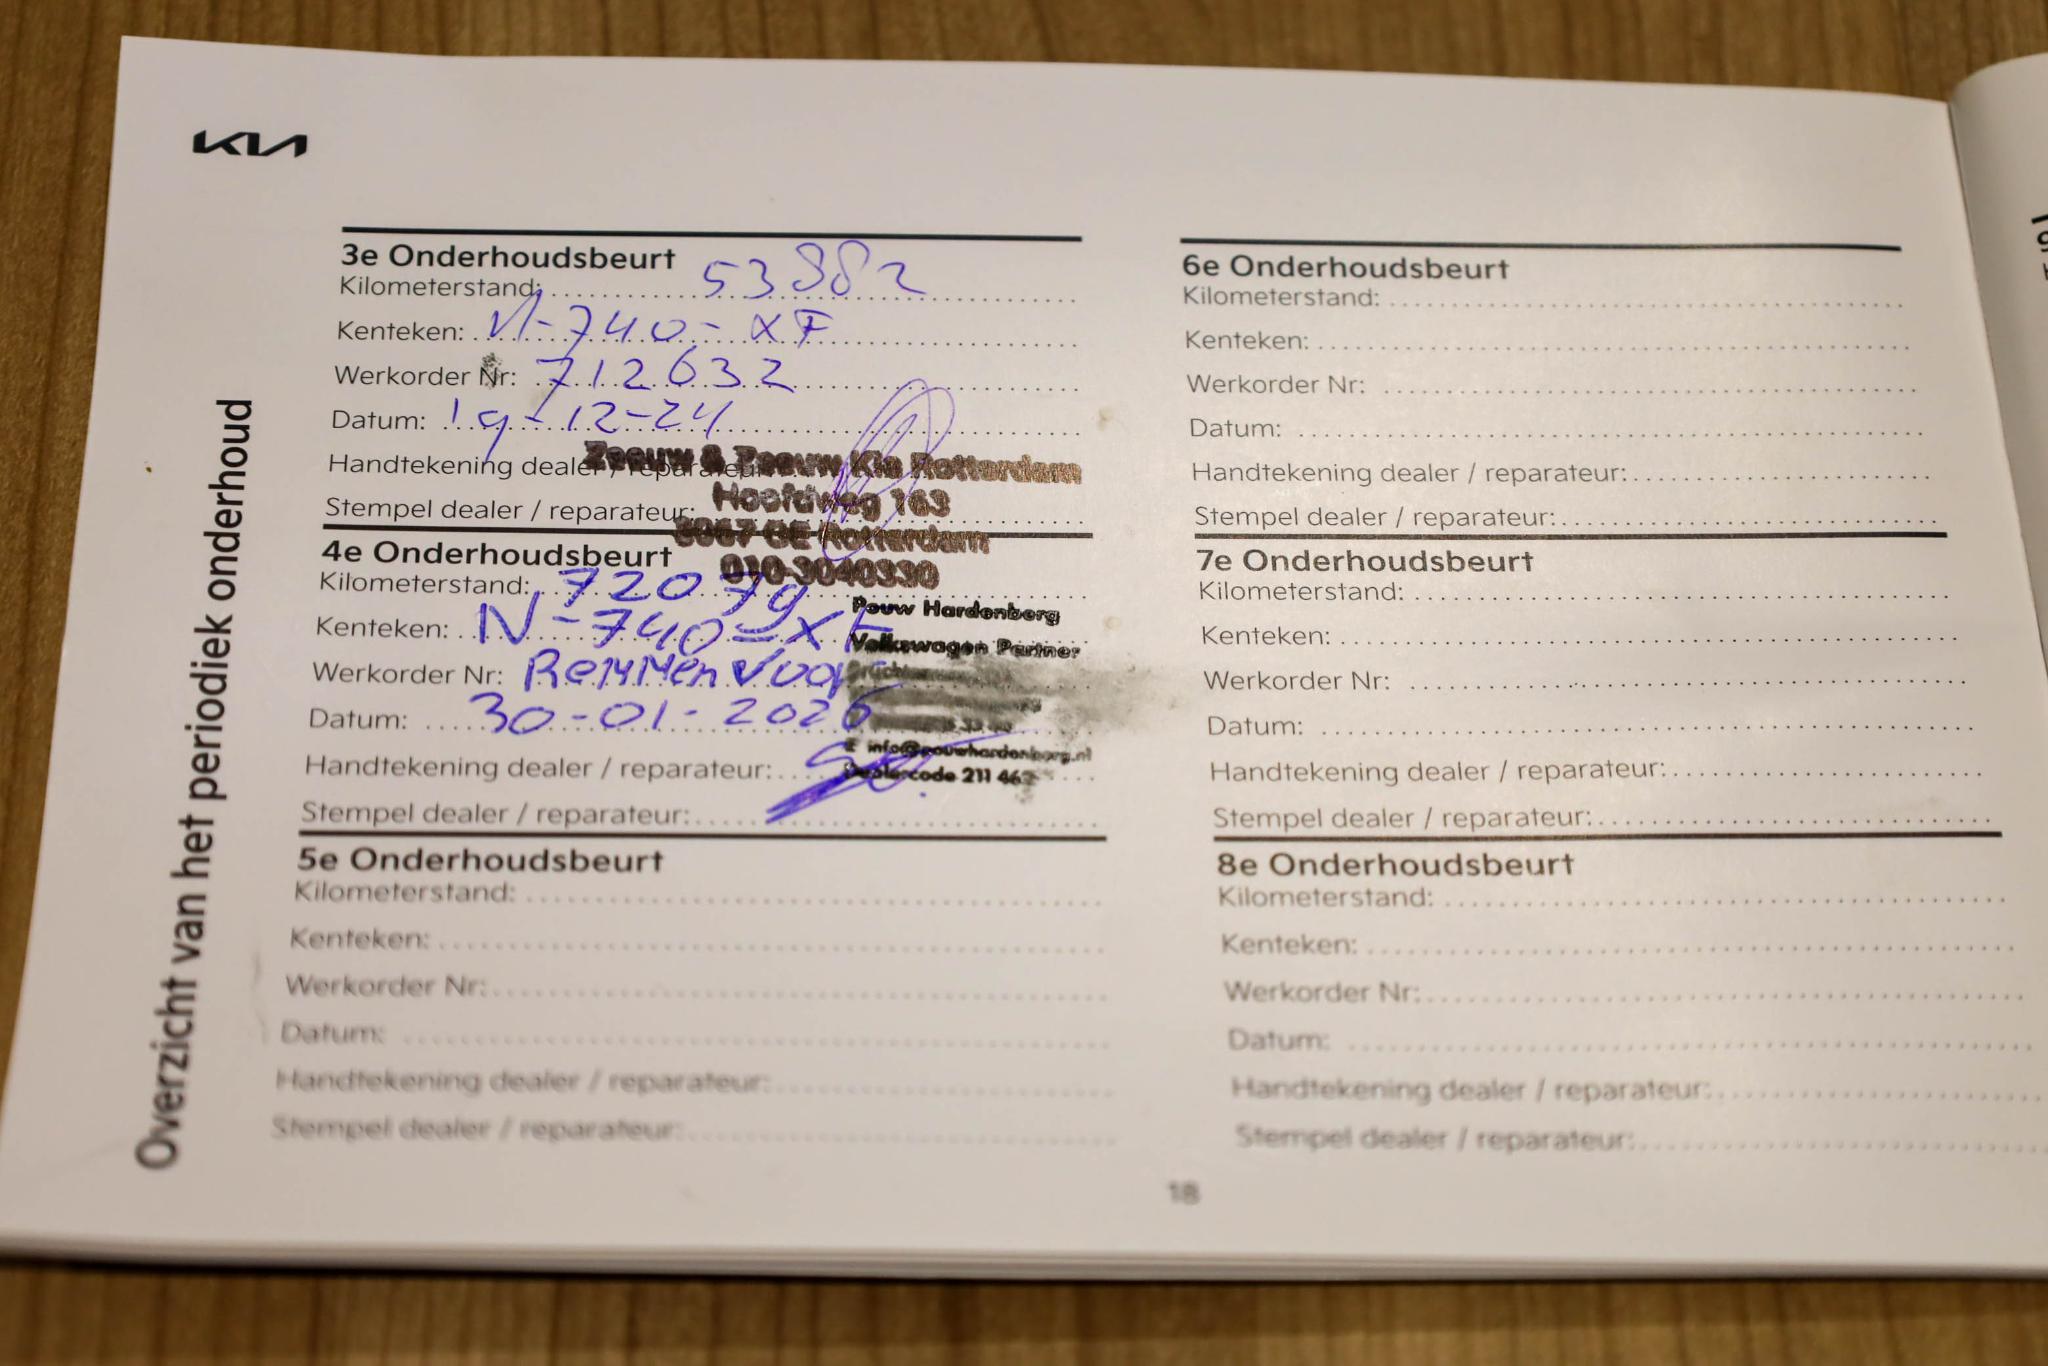 KIA
Overzicht van het periodiek onderhoud
3e Onderhoudsbeurt
Kilometerstand: 53982
Kenteken: N-740-XF
Werkorder Nr: 712632
Datum: 19-12-24
Handtekening dealer / reparateur:
Stempel dealer / reparateur:
Zeeuw & Zeeuw Kia Rotterdam
Hoofdweg 163
3067 GE Rotterdam
010-3040330
4e Onderhoudsbeurt
Kilometerstand: 72079
Kenteken: N-740-XF
Werkorder Nr: Remmen voor
Datum: 30-01-2026
Handtekening dealer / reparateur:
Stempel dealer / reparateur:
Pouw Hardenberg
Volkswagen Partner
E info@pouwhardenberg.nl
Dealercode 211 462
5e Onderhoudsbeurt
Kilometerstand:
Kenteken:
Werkorder Nr:
Datum:
Handtekening dealer / reparateur:
Stempel dealer / reparateur:
6e Onderhoudsbeurt
Kilometerstand:
Kenteken:
Werkorder Nr:
Datum:
Handtekening dealer / reparateur:
Stempel dealer / reparateur:
7e Onderhoudsbeurt
Kilometerstand:
Kenteken:
Werkorder Nr:
Datum:
Handtekening dealer / reparateur:
Stempel dealer / reparateur:
8e Onderhoudsbeurt
Kilometerstand:
Kenteken:
Werkorder Nr:
Datum:
Handtekening dealer / reparateur:
Stempel dealer / reparateur:
18